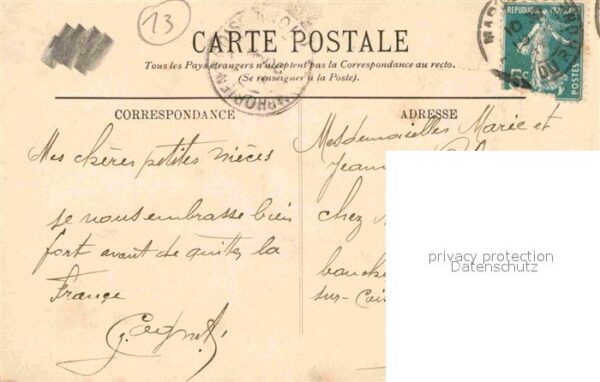 13
CARTE POSTALE
Tous les Pays étrangers n'acceptent pas la Correspondance au recto.
(Se renseigner à la Poste).
RÉPUBLIQUE FRANÇAISE
5c
POSTES
CORRESPONDANCE
ADRESSE
Mes chères petites nièces
je vous embrasse bien
fort avant de quitter la
France
Mesdemoiselles Marie et
Jeann
chez
sur-
privacy protection
Datenschutz